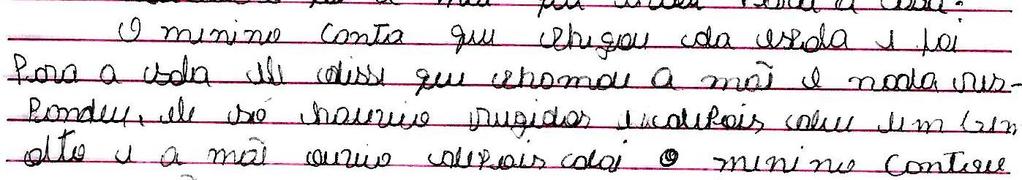 O minino conta que chegou da escola e foi
Para a sala ele disse que chamou a mãi e nada res-
Pondeu, ele só houviu rugidos e depois deu um
alto e a mãi ouviu depois dai o minino